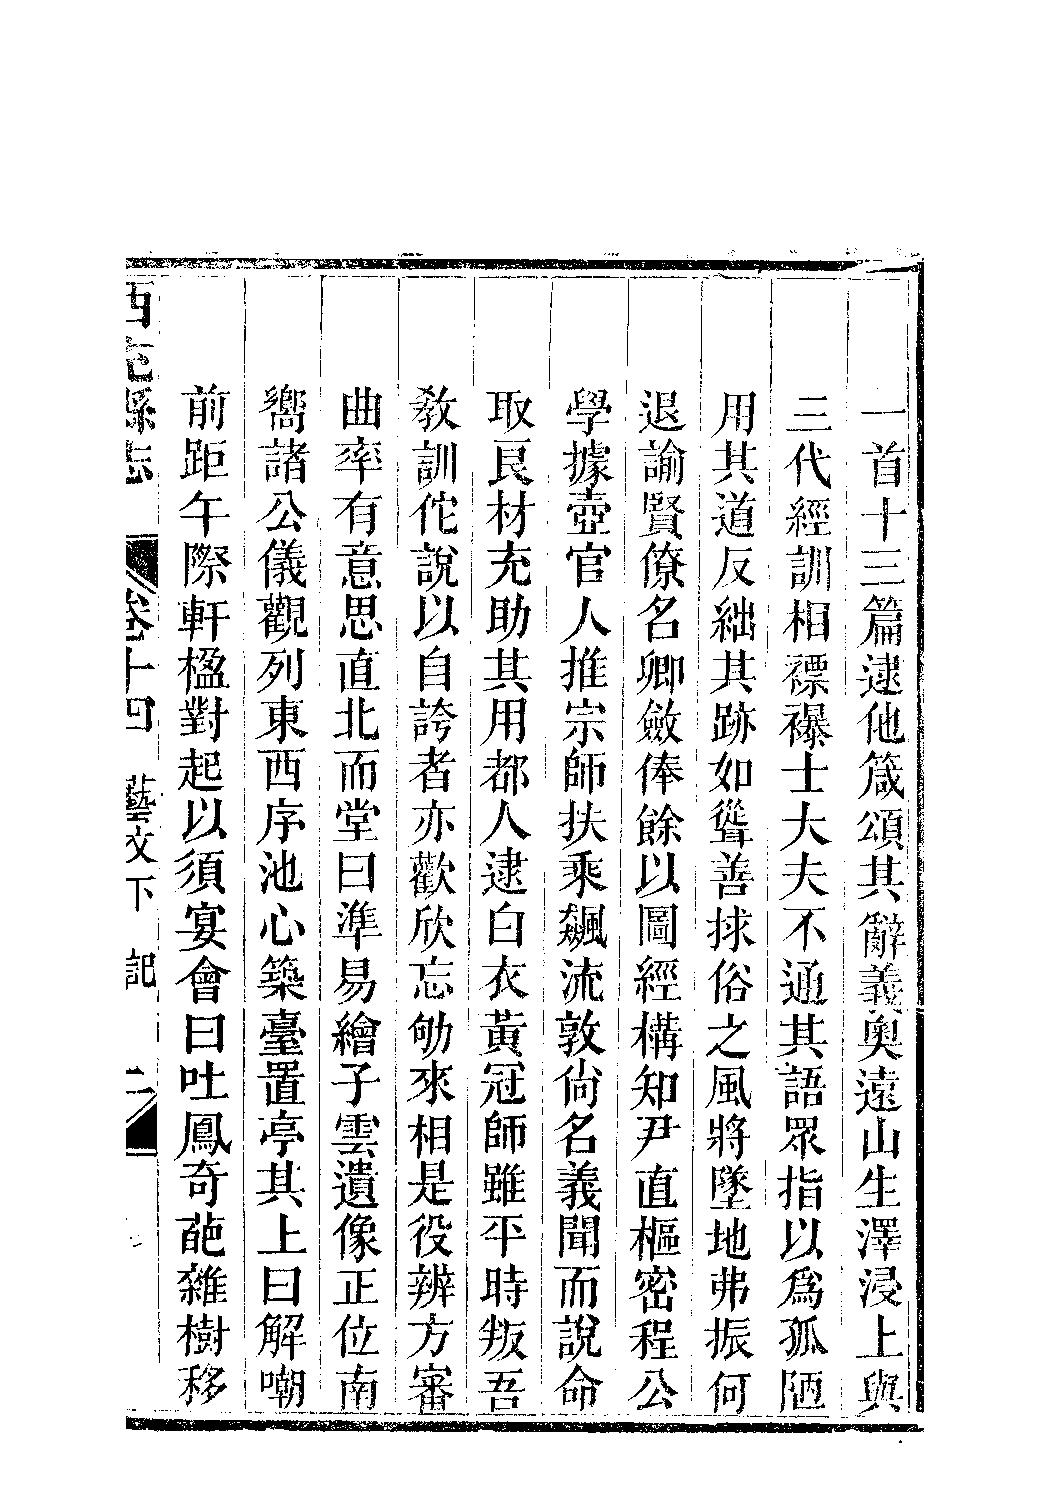 一首十三篇逮他箴頌其辭義奧遠山生澤浸上與
三代經訓相褾襮士大夫不通其語眾指以爲孤陋
用其道反絀其跡如聳善捄俗之風將墜地弗振何
退諭賢僚名卿斂俸餘以圖經構知尹直樞密程公
學據壼官人推宗師扶乘飆流敦尙名義聞而說命
取艮材充助其用都人逮白衣黃冠師雖平時叛吾
敎訓佗說以自誇者亦歡欣忘劬來相是役辨方審
曲率有意思直北而堂曰準易繪子雲遺像正位南
嚮諸公儀觀列東西序池心築臺置亭其上曰解嘲
前距午際軒楹對起以須宴會曰吐鳳奇葩雜樹移
西充縣志 卷十四 藝文下 記 二